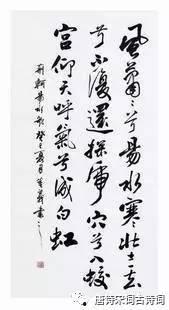 風蕭蕭兮易水寒壮士一去
兮不復還探虎穴兮入蛟
宮仰天呼氣兮成白虹
荆軻易水歌癸巳夏月書之
唐诗宋词古诗词